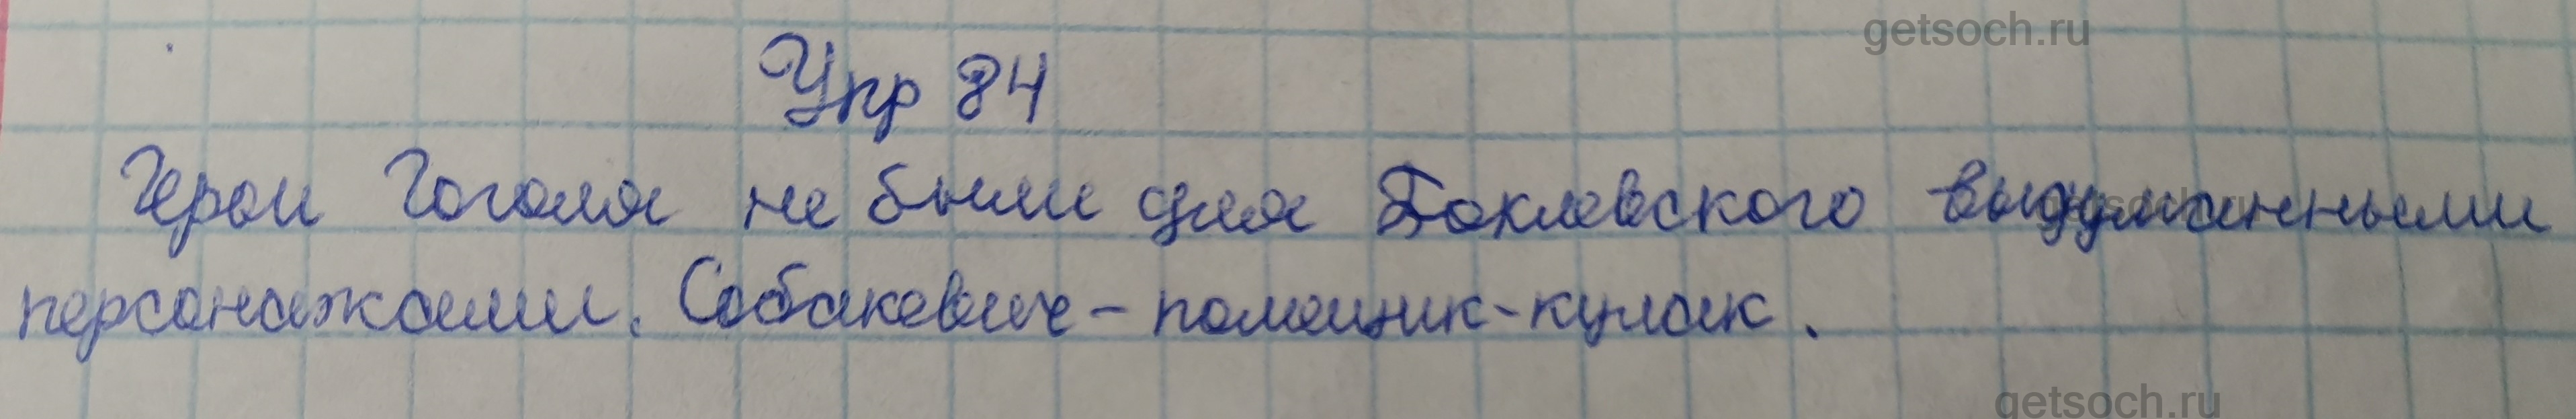 getsoch.ru
Упр 84
Герои Гоголя не были для Боклевского выдуманными
getsoch.ru
персонажами. Собакевич - помещик-кулак.
getsoch.ru